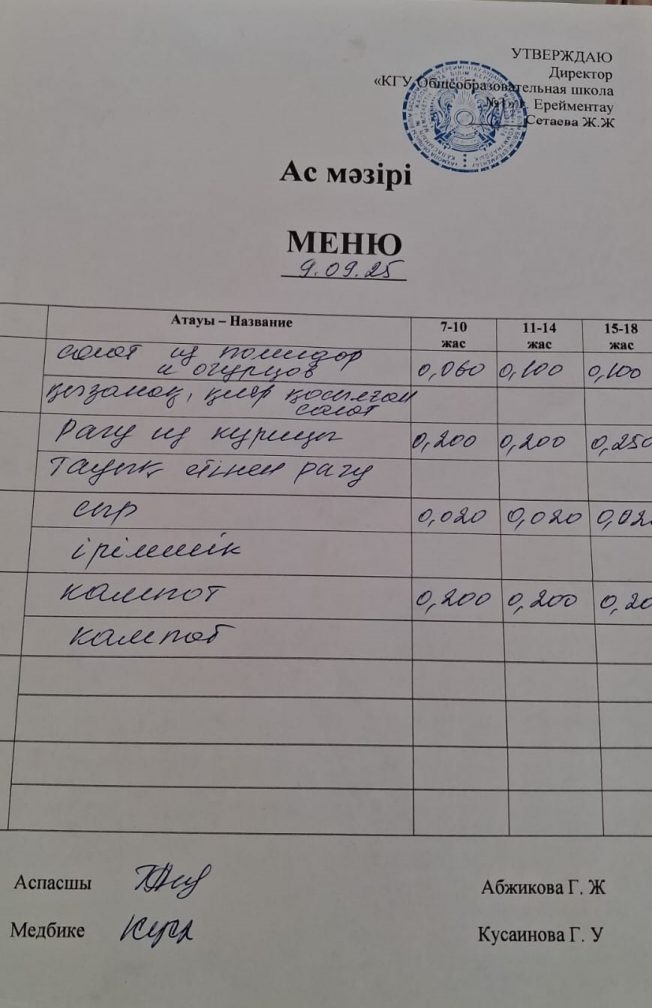 УТВЕРЖДАЮ
Директор
«КГУ Общеобразовательная школа
№1» г. Ерейментау
Сетаева Ж.Ж
Ас мәзірі
МЕНЮ
9.09.25
Атауы – Название 7-10 жас 11-14 жас 15-18 жас
салат из помидор и огурцов 0,060 0,100 0,100
қызанақ, қияр қосылған салат
Рагу из курицы 0,200 0,200 0,250
Тауық етінен рагу
сыр 0,020 0,020 0,02
ірімшік
кампот 0,200 0,200 0,20
кампот
Аспасшы Абжикова Г. Ж
Медбике Кусаинова Г. У